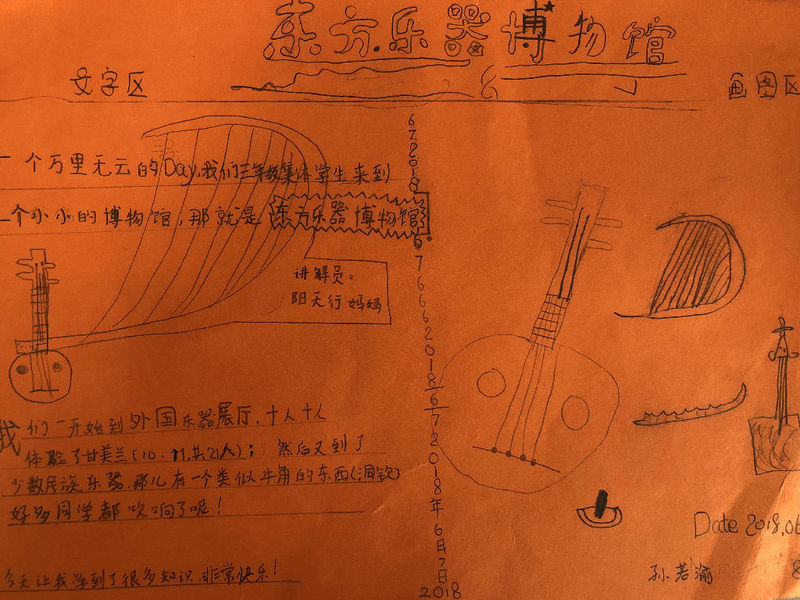 东方乐器博物馆
文字区
画图区
一个万里无云的Day,我们三年级集体学生来到
一个小小的博物馆,那就是东方乐器博物馆。
讲解员:
阳天行妈妈
我们一开始到外国乐器展厅,十人十人
体验了甘美兰(10、11,共21人);然后又到了
少数民族乐器,那儿有一个类似牛角的东西
好多同学都吹响了呢!
今天让我学到了很多知识,非常快乐!
2018年6月7日
2018
Date 2018.06
孙若渝